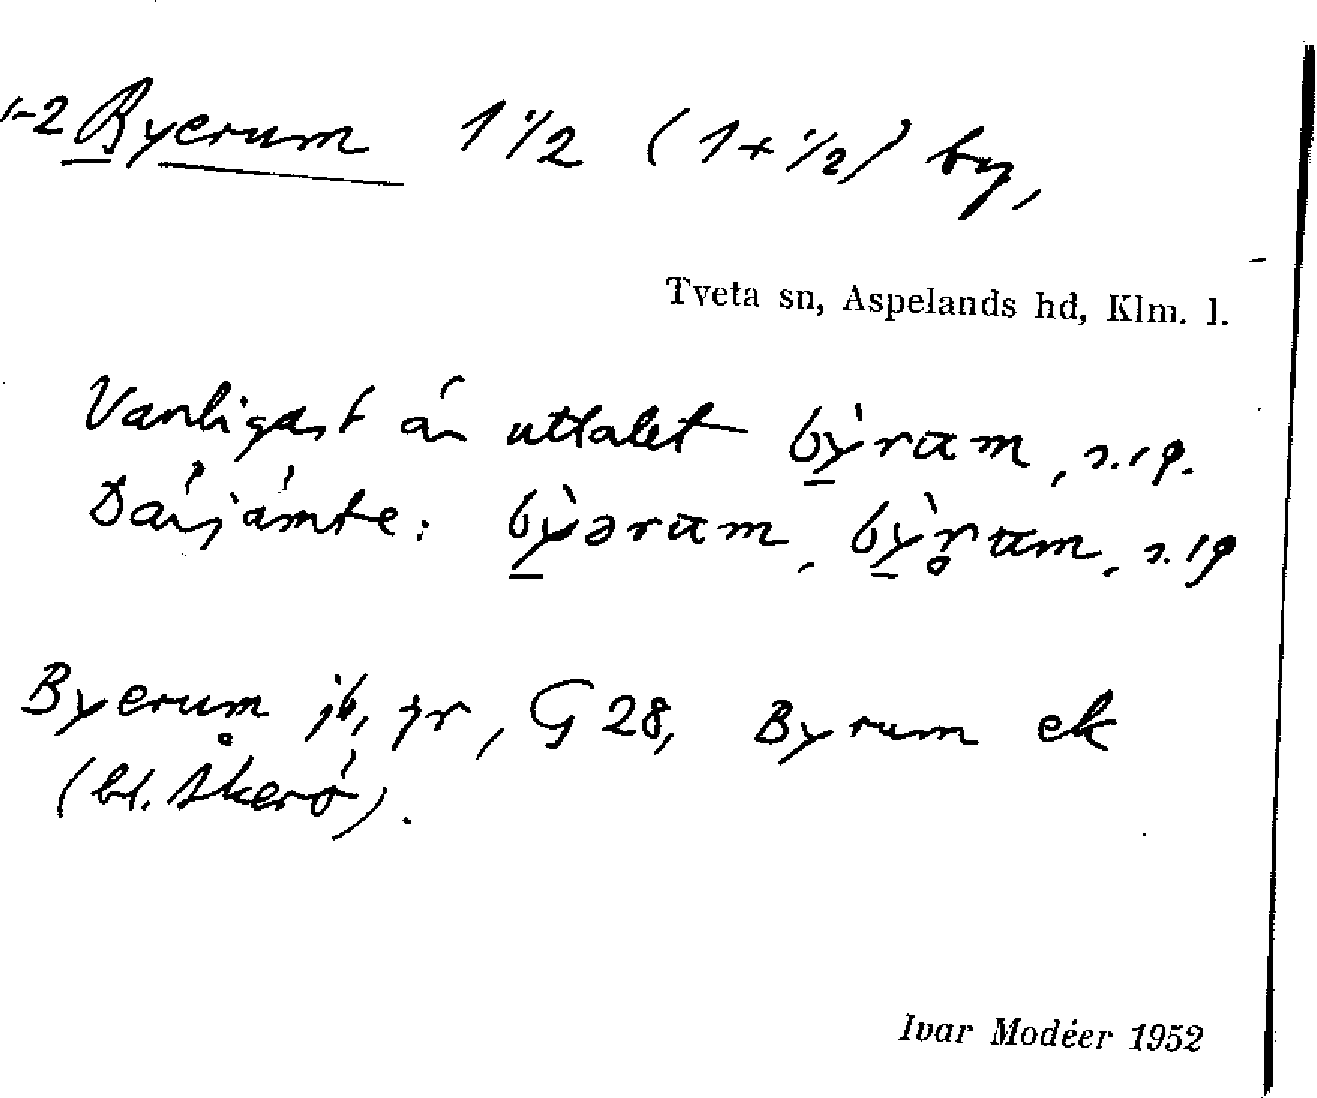 1-2 Byerum 1 1/2 (1+1/2) by,
Tveta sn, Aspelands hd, Klm. l.
Vanligast är uttalet bỳram,
Därjämte: bỳəram, bỳr̥am,
Byerum jb, jr, G 28, Byrum ek
(bl. Åkerö).
Ivar Modéer 1952